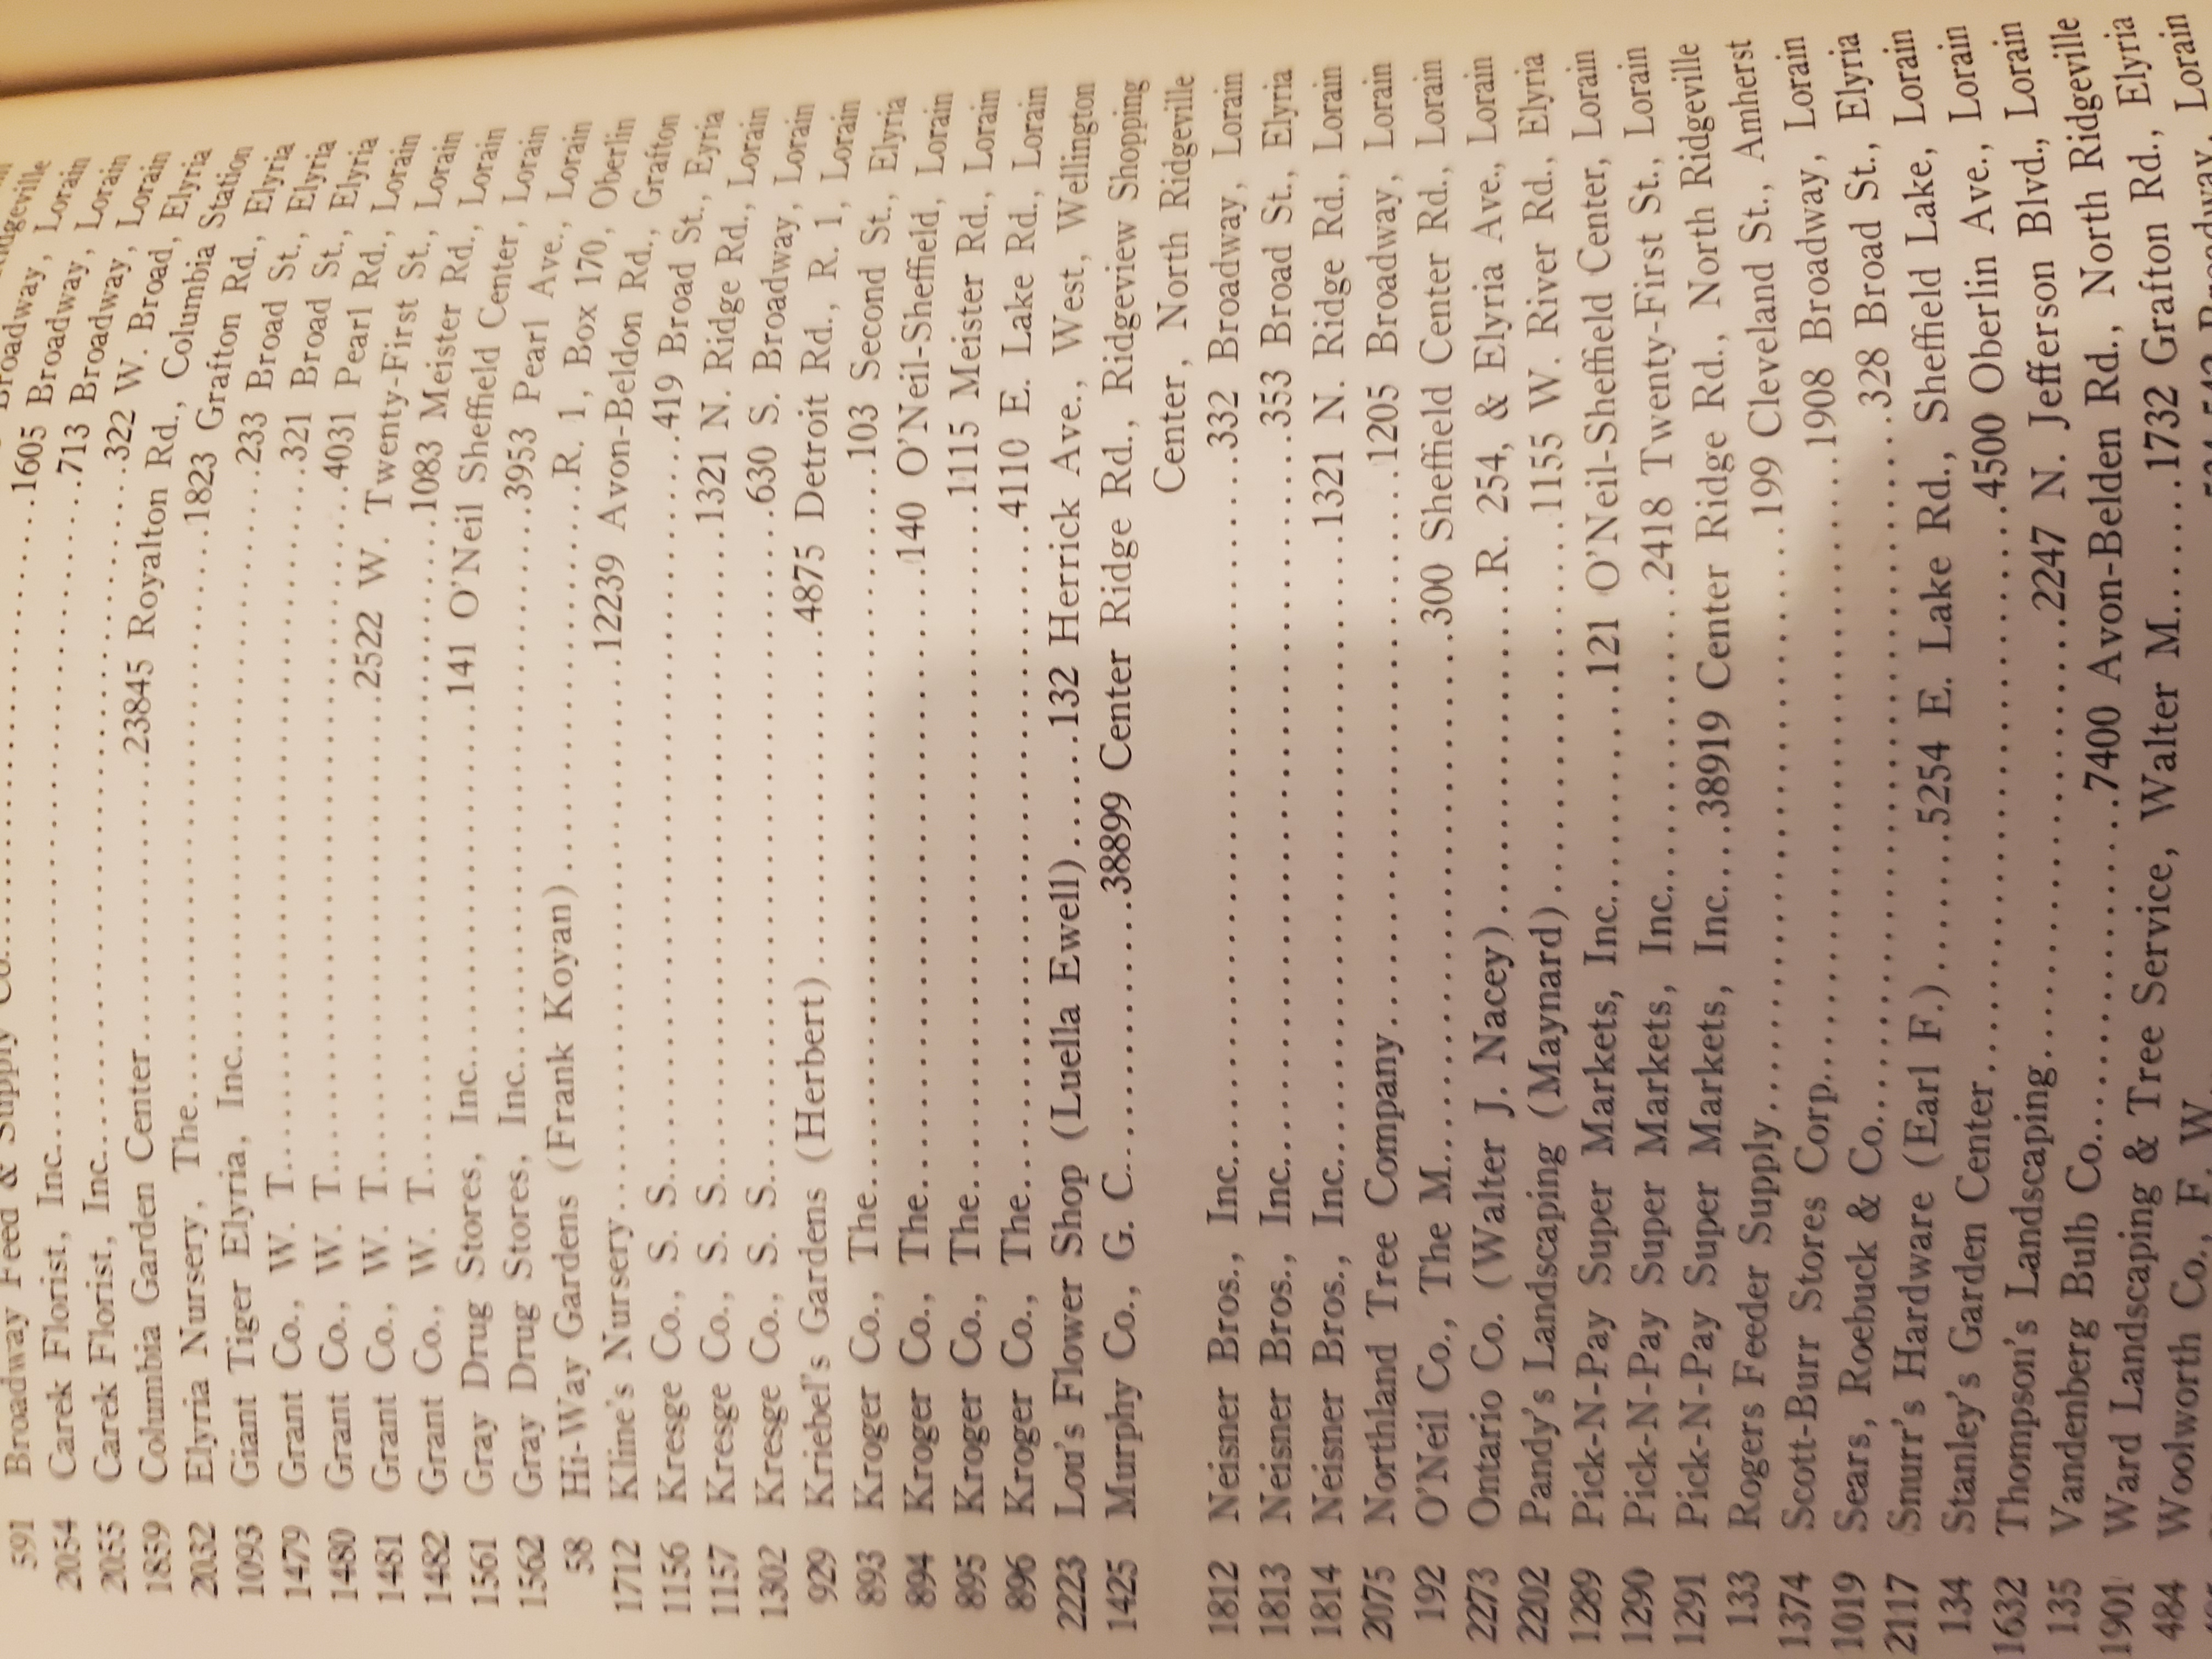 591 Broadway Feed & Supply Co. ....1605 Broadway, Lorain
2054 Carek Florist, Inc. ....713 Broadway, Lorain
2055 Carek Florist, Inc. ....322 W. Broad, Elyria
1859 Columbia Garden Center....23845 Royalton Rd., Columbia Station
2032 Elyria Nursery, The....1823 Grafton Rd., Elyria
1093 Giant Tiger Elyria, Inc. ....233 Broad St., Elyria
1479 Grant Co., W. T. ....321 Broad St., Elyria
1480 Grant Co., W. T. ....4031 Pearl Rd., Lorain
1481 Grant Co., W. T. ....2522 W. Twenty-First St., Lorain
1482 Grant Co., W. T. ....1083 Meister Rd., Lorain
1561 Gray Drug Stores, Inc. ....141 O'Neil Sheffield Center, Lorain
1562 Gray Drug Stores, Inc. ....3953 Pearl Ave., Lorain
58 Hi-Way Gardens (Frank Koyan)....R. 1, Box 170, Oberlin
1712 Kline's Nursery....12239 Avon-Beldon Rd., Grafton
1156 Kresge Co., S. S. ....419 Broad St., Eyria
1157 Kresge Co., S. S. ....1321 N. Ridge Rd., Lorain
1302 Kresge Co., S. S. ....630 S. Broadway, Lorain
929 Kriebel's Gardens (Herbert)....4875 Detroit Rd., R. 1, Lorain
893 Kroger Co., The....103 Second St., Elyria
894 Kroger Co., The....140 O'Neil-Sheffield, Lorain
895 Kroger Co., The....1115 Meister Rd., Lorain
896 Kroger Co., The....4110 E. Lake Rd., Lorain
2223 Lou's Flower Shop (Luella Ewell)....132 Herrick Ave., West, Wellington
1425 Murphy Co., G. C. ....38899 Center Ridge Rd., Ridgeview Shopping
Center, North Ridgeville
1812 Neisner Bros., Inc. ....332 Broadway, Lorain
1813 Neisner Bros., Inc. ....353 Broad St., Elyria
1814 Neisner Bros., Inc. ....1321 N. Ridge Rd., Lorain
2075 Northland Tree Company....1205 Broadway, Lorain
192 O'Neil Co., The M. ....300 Sheffield Center Rd., Lorain
2273 Ontario Co. (Walter J. Nacey)....R. 254, & Elyria Ave., Lorain
2202 Pandy's Landscaping (Maynard)....1155 W. River Rd., Elyria
1289 Pick-N-Pay Super Markets, Inc. ....121 O'Neil-Sheffield Center, Lorain
1290 Pick-N-Pay Super Markets, Inc. ....2418 Twenty-First St., Lorain
1291 Pick-N-Pay Super Markets, Inc. ...38919 Center Ridge Rd., North Ridgeville
133 Rogers Feeder Supply....199 Cleveland St., Amherst
1374 Scott-Burr Stores Corp. ....1908 Broadway, Lorain
1019 Sears, Roebuck & Co. ....328 Broad St., Elyria
2117 Smurr's Hardware (Earl F.)....5254 E. Lake Rd., Sheffield Lake, Lorain
134 Stanley's Garden Center....4500 Oberlin Ave., Lorain
1632 Thompson's Landscaping....2247 N. Jefferson Blvd., Lorain
135 Vandenberg Bulb Co. ....7400 Avon-Belden Rd., North Ridgeville
1901 Ward Landscaping & Tree Service, Walter M. ....1732 Grafton Rd., Elyria
484 Woolworth Co., F. W. Broadway, Lorain